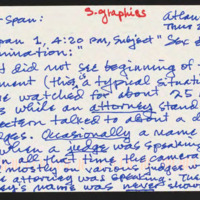 -Span: 3. graphics Atlan
Thurs
Span 1, 4:20 pm, Subject "Sex d
imination:"
I did not see beginning of
ment (this a typical situati
we watched for about 25
es while an attorney stand
ectern talked to about a d
dges. Occasionally a name
when a judge was speaking
in all that time the camera
mostly on various judges w
e attorney was speaking. The
ey's name was never show